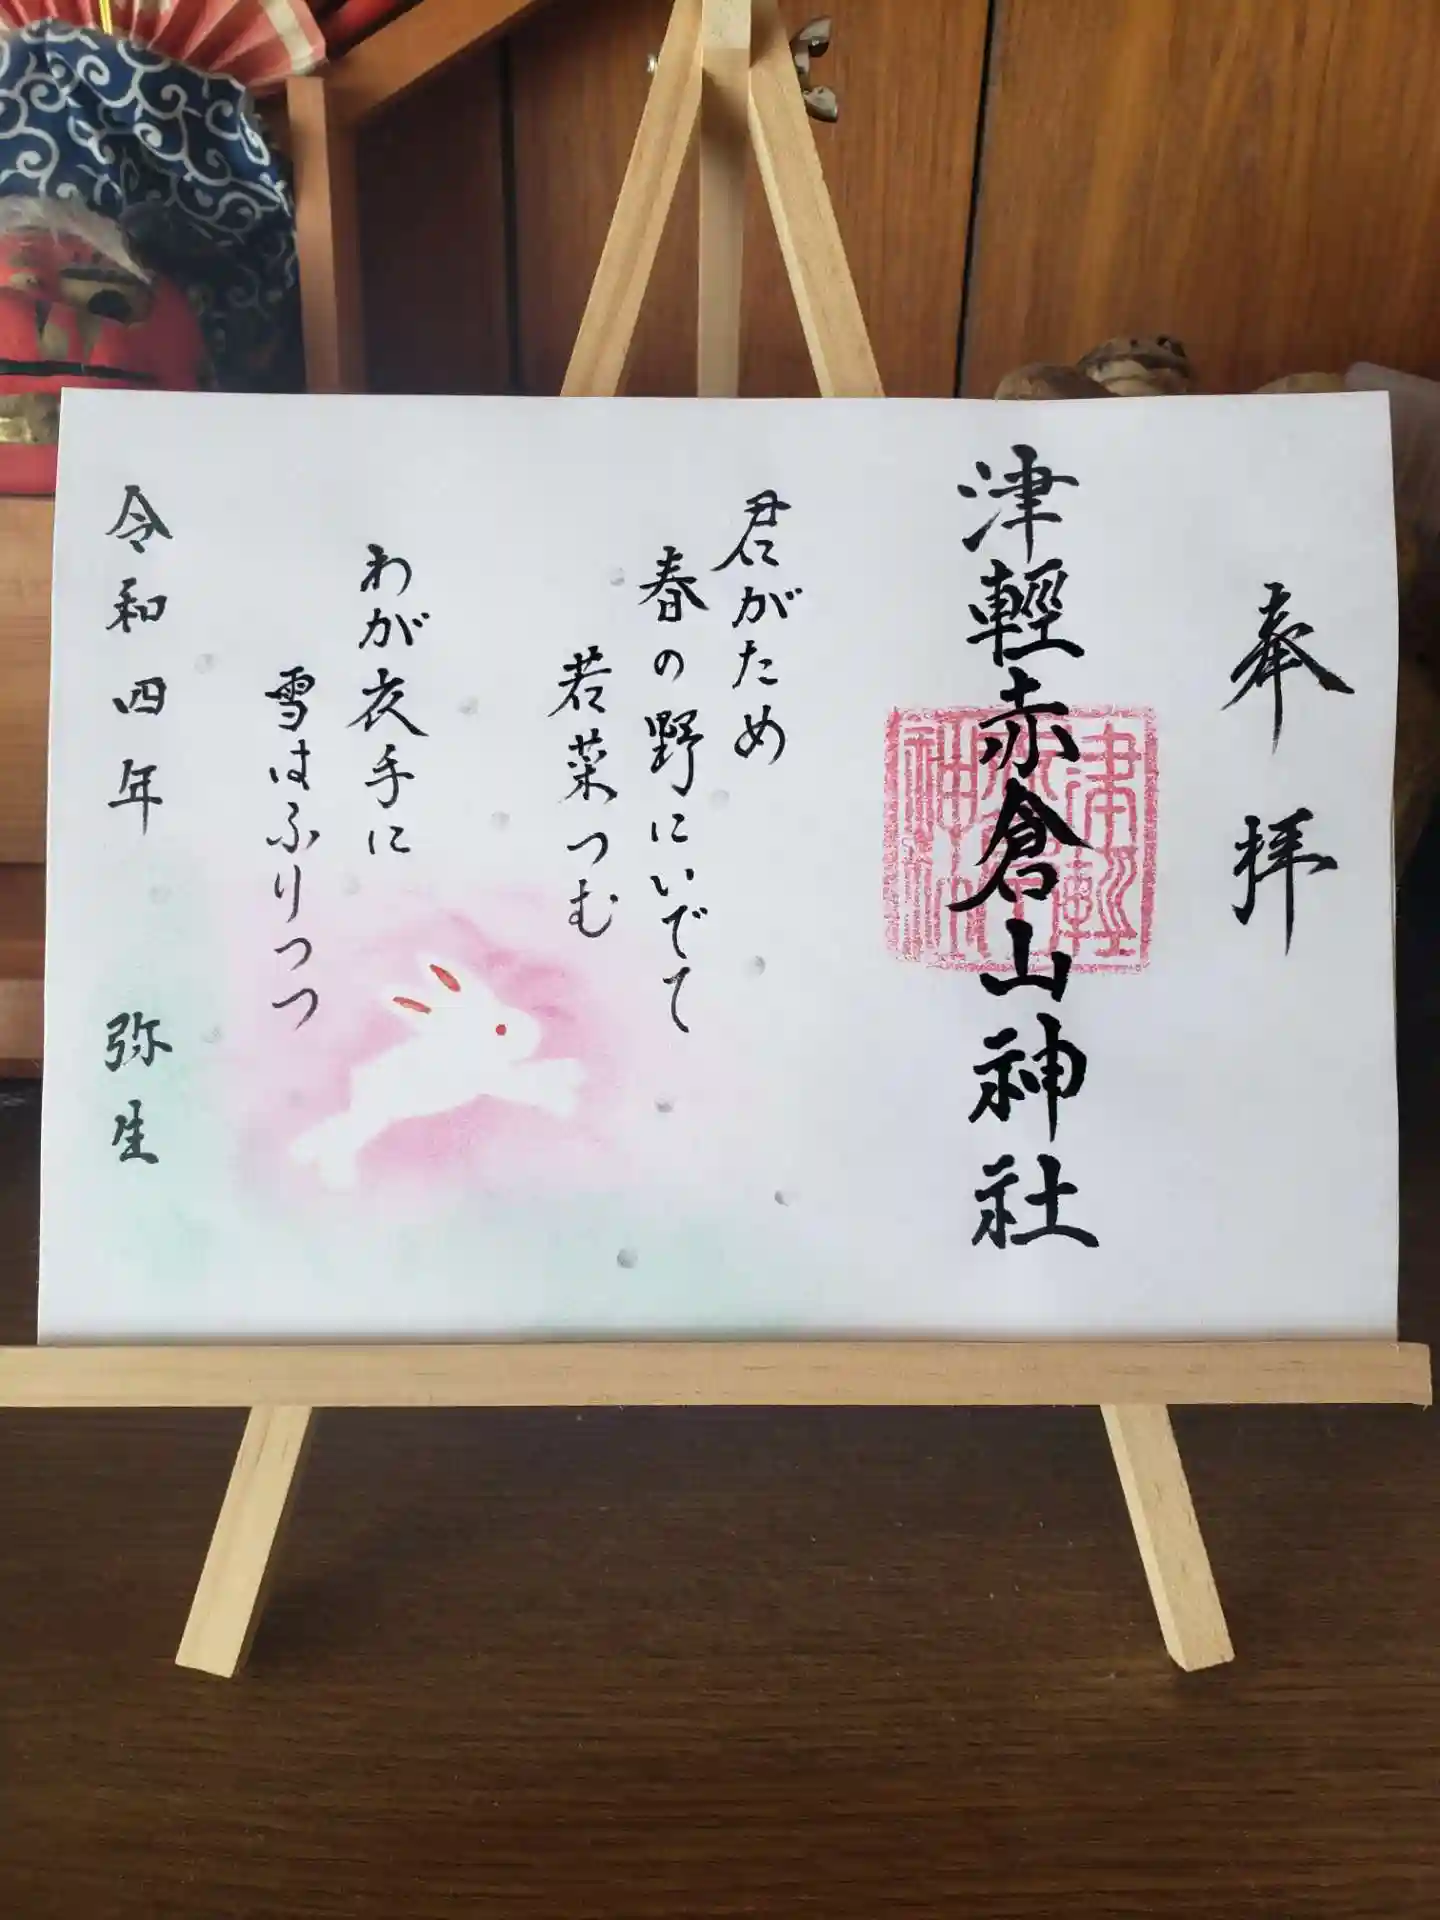 奉拝
津輕赤倉山神社
君がため
春の野にいでて
若菜つむ
わが衣手に
雪はふりつつ
令和四年 弥生